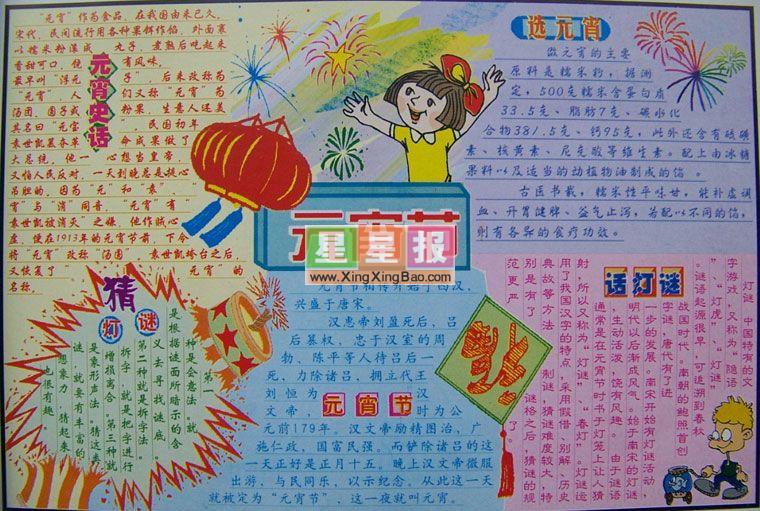 "元宵"作为食品，在我国由来已久，
宋代，民间流行用各种果饵作馅，外面裹
以糯米粉滚成 丸子，煮熟后吃起来
香甜可口，饶 有风味。
最早叫"浮元 子"，后来改称为
"元宵"，人 们又称"元宵"为
汤团、圆子或 粉果，生意人还美
其名曰"元宝 ，民国初年
袁世凯篡夺革 命成果做了
大总统，他一 心想当皇帝，
又怕人民反对，一天到晚总是提心
吊胆的，因为"元"和"袁"，
宵"与"消"同音，"元宵"有
袁世凯被消灭"之嫌，他作贼心
虚，便在1913年的元宵节前，下令
将"元宵"改称"汤团" 袁世凯垮台之后，
又恢复了 元宵"的
名称。
元宵史话
选元宵
做元宵的主要
原料是糯米粉，据测
定，500克糯米含蛋白质
33.5克、脂肪7克、碳水化
合物381.5克、钙95克，此外还含有硫磺
素、核黄素、尼克酸等维生素。配上由冰糖
果料以及适当的动植物油制成的馅。
古医书载，糯米性平味甘，能补虚调
血、开胃健脾、益气止泻，若配以不同的馅，
则有各异的食疗功效。
元宵节
星星报
www.XingXingBao.com
元宵节相传开始于西汉，
兴盛于唐宋。
汉惠帝刘盈死后，吕
后篡权，忠于汉室的周
勃、陈平等人待吕后一
死，力除诸吕，拥立代王
刘恒为 汉
文帝， 元宵节 时为公
元前179年。汉文帝励精图治，广
施仁政，国富民强。而铲除诸吕的这
一天正好是正月十五。晚上汉文帝微服
出游，与民同乐，以示纪念，从此这一天
就被定为"元宵节"，这一夜就叫元宵。
猜灯谜
第一
种是会意法，就
是根据谜面所暗示的含
义去寻找谜底。
第二种就是拆字法，
拆字，就是把字进行
增损离合 第三种就
是象形法，猜这类
谜，就要有丰富的
想象力，猜起来
也很有趣
话灯谜
灯谜，中国特有的文
字游戏，又称为"隐语
"、"灯虎"、"灯谜"
。谜语起源很早，可追溯到春秋
战国时代。南朝的鲍照首创
字谜，唐代有了进
一步的发展。南宋开始有灯谜活动，
明代以后渐成风气，始于南宋的灯谜
，生动活泼，饶有风趣。由于谜语
通常是在元宵节时书于灯笼上让人猜
射，所以又称为"灯谜"、"春灯"。灯谜运
用了我国汉字的特点，采用假借、别解、历史
典故等方法 制谜，猜谜难度较大，特
别是有了 谜格之后，猜谜的规
范更严